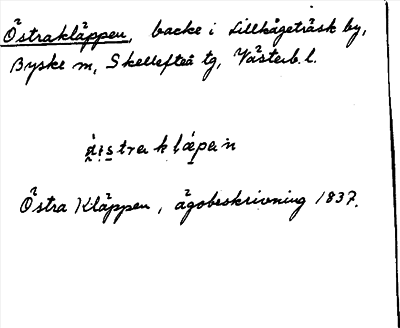 Östrakläppen, backe i Lillhågeträsk by,
Byske m, Skellefteå tg, Västerb. l.
Östra Kläppen, ägobeskrivning 1837.